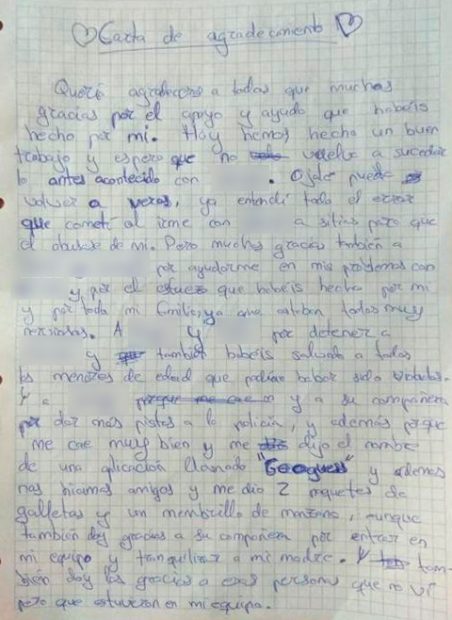 Carta de agradecimiento
Quería agradeceros a todos que muchas
gracias por el apoyo y ayuda que habéis
hecho por mi. Hoy hemos hecho un buen
trabajo y espero que no vuelva a suceder
lo antes acontecido con . Ojala pueda
volver a veros, ya entendí todo el error
que cometí al irme con a sitios para que
el abuse de mi. Pero muchas gracias también a
por ayudarme en mis problemas con
y por el que habéis hecho por mi
y por toda mi familia, ya que estaban todos muy
. A y por detener a
y también habéis salvado a todos
los menores de edad que podrían haber sido .
Y a y a su compañera
por dar más pistas a la policía, y además porque
me cae muy bien y me dijo el nombre
de una aplicación llamado "Geoguess" y además
nos hicimos amigos y me dio 2 paquetes de
galletas y un membrillo de manzana, aunque
también doy gracias a su compañera por entrar en
mi equipo y tranquilizar a mi madre. Y tam-
bién doy las gracias a esas personas que no vi
pero que estuvieron en mi equipo.